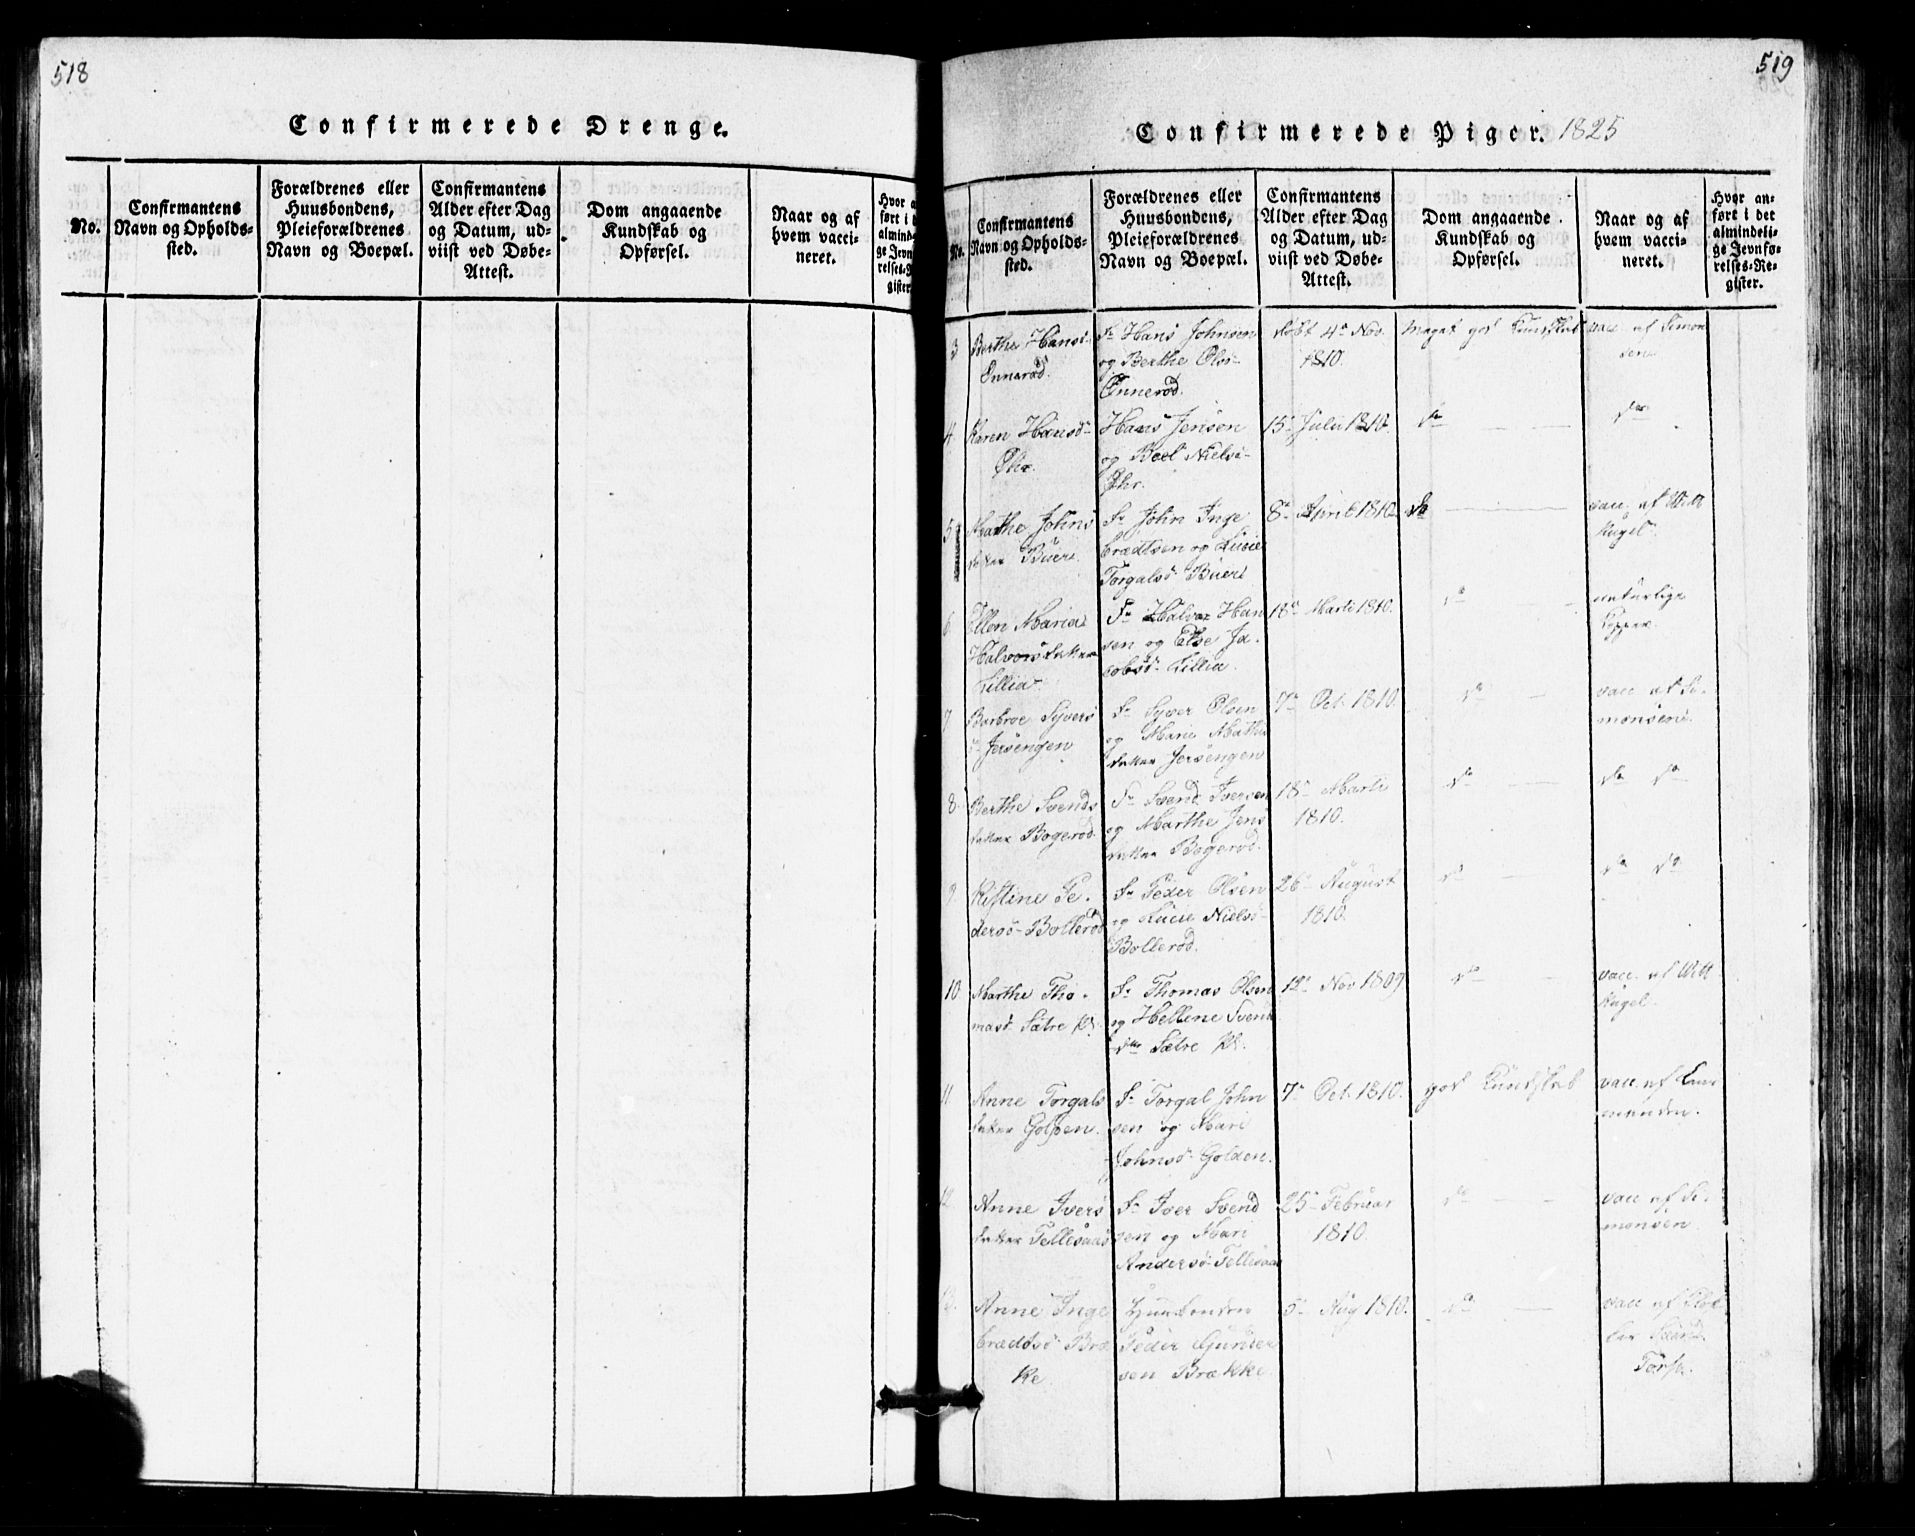 518
Confirmerede Drenge.
No.
Confirmantens
Navn og Opholds-
sted.
Forældrenes eller
Huusbondens,
Pleieforældrenes
Navn og Boepæl.
Confirmantens
Alder efter Dag
og Datum, ud-
viist ved Døbe-
Attest.
Dom angaaende
Kundskab og
Opførsel.
Naar og af
hvem vacci-
neret.
Hvor
ført i
almind
ge Jevn
relses
gister
519
Confirmerede Piger. 1825
No.
Confirmantens
Navn og Opholds-
sted.
Forældrenes eller
Huusbondens,
Pleieforældrenes
Navn og Boepæl.
Confirmantens
Alder efter Dag
og Datum, ud-
viist ved Døbe-
Attest.
Dom angaaende
Kundskab og
Opførsel.
Naar og af
hvem vacci-
neret.
Hvor an-
ført i det
almindeli-
ge Jevnfø-
relses-Re-
gister.
3 Berthe Hansd-
Ønnerød.
Fr Hans Johnsen
og Berthe Olsd-
Ønnerød.
døbt 4de Nov.
1810.
Meget god Kundskab
vacc. af Simon
sen
4 Karen Hansd-
Øhr.
Hans Jensen
og Boel Nielsd-
Øhr.
15 Julii 1810.
do
do
5 Marthe Johns
datter Buer.
Fr John Inge
brædtsen og Lucie
Torgalsd Buer
8de April 1810
do
vacc. af Witt
Kugel.
6. Ellen Maria
Halvorsdatter
Lillia
Fr Halvor Han
sen og Else Ja-
cobsd- Lillia.
18de Marti 1810.
do
naturlige
Kopper.
7 Barbroe Syvers
d- Jersengen
Fr Syver Olsen
og Marie Mathis
datter Jersengen
7de Oct. 1810.
do
vacc af Si-
monsen.
8. Berthe Svends
datter Bogerød.
Fr Svend Iversen
og Marthe Jens
datter Bogerød.
18de Marti
1810.
do
do do
9. Kistine Pe-
dersd- Bollerød
Fr Peder Olsen
og Lucie Nielsd-
Bollerød.
26de August
1810.
do
do do
10 Marthe Tho-
masd Sætre
Fr Thomas Olsen
og Hellene Svend
dtr Sætre
12te Nov 1809
do
vacc. af Witt
Kugel-
11 Anne Torgals
datter Golden.
Fr Torgal John
sen og Mari
Johnsd- Golden.
7de Oct. 1810.
god Kundskab
vacc. af
12. Anne Ivers
datter Tellesaas
Fr Iver Svend
sen og Mari
Andersd- Tellesaas
25de Februar
1810.
do
vacc af Si-
monsen.
13. Anne Inge
brædtsd Bræ
ke.
Huusbonden
Peder Gunder
sen Brække
5te Aug 1810.
do
vacc af Klok-
ker
Torp.